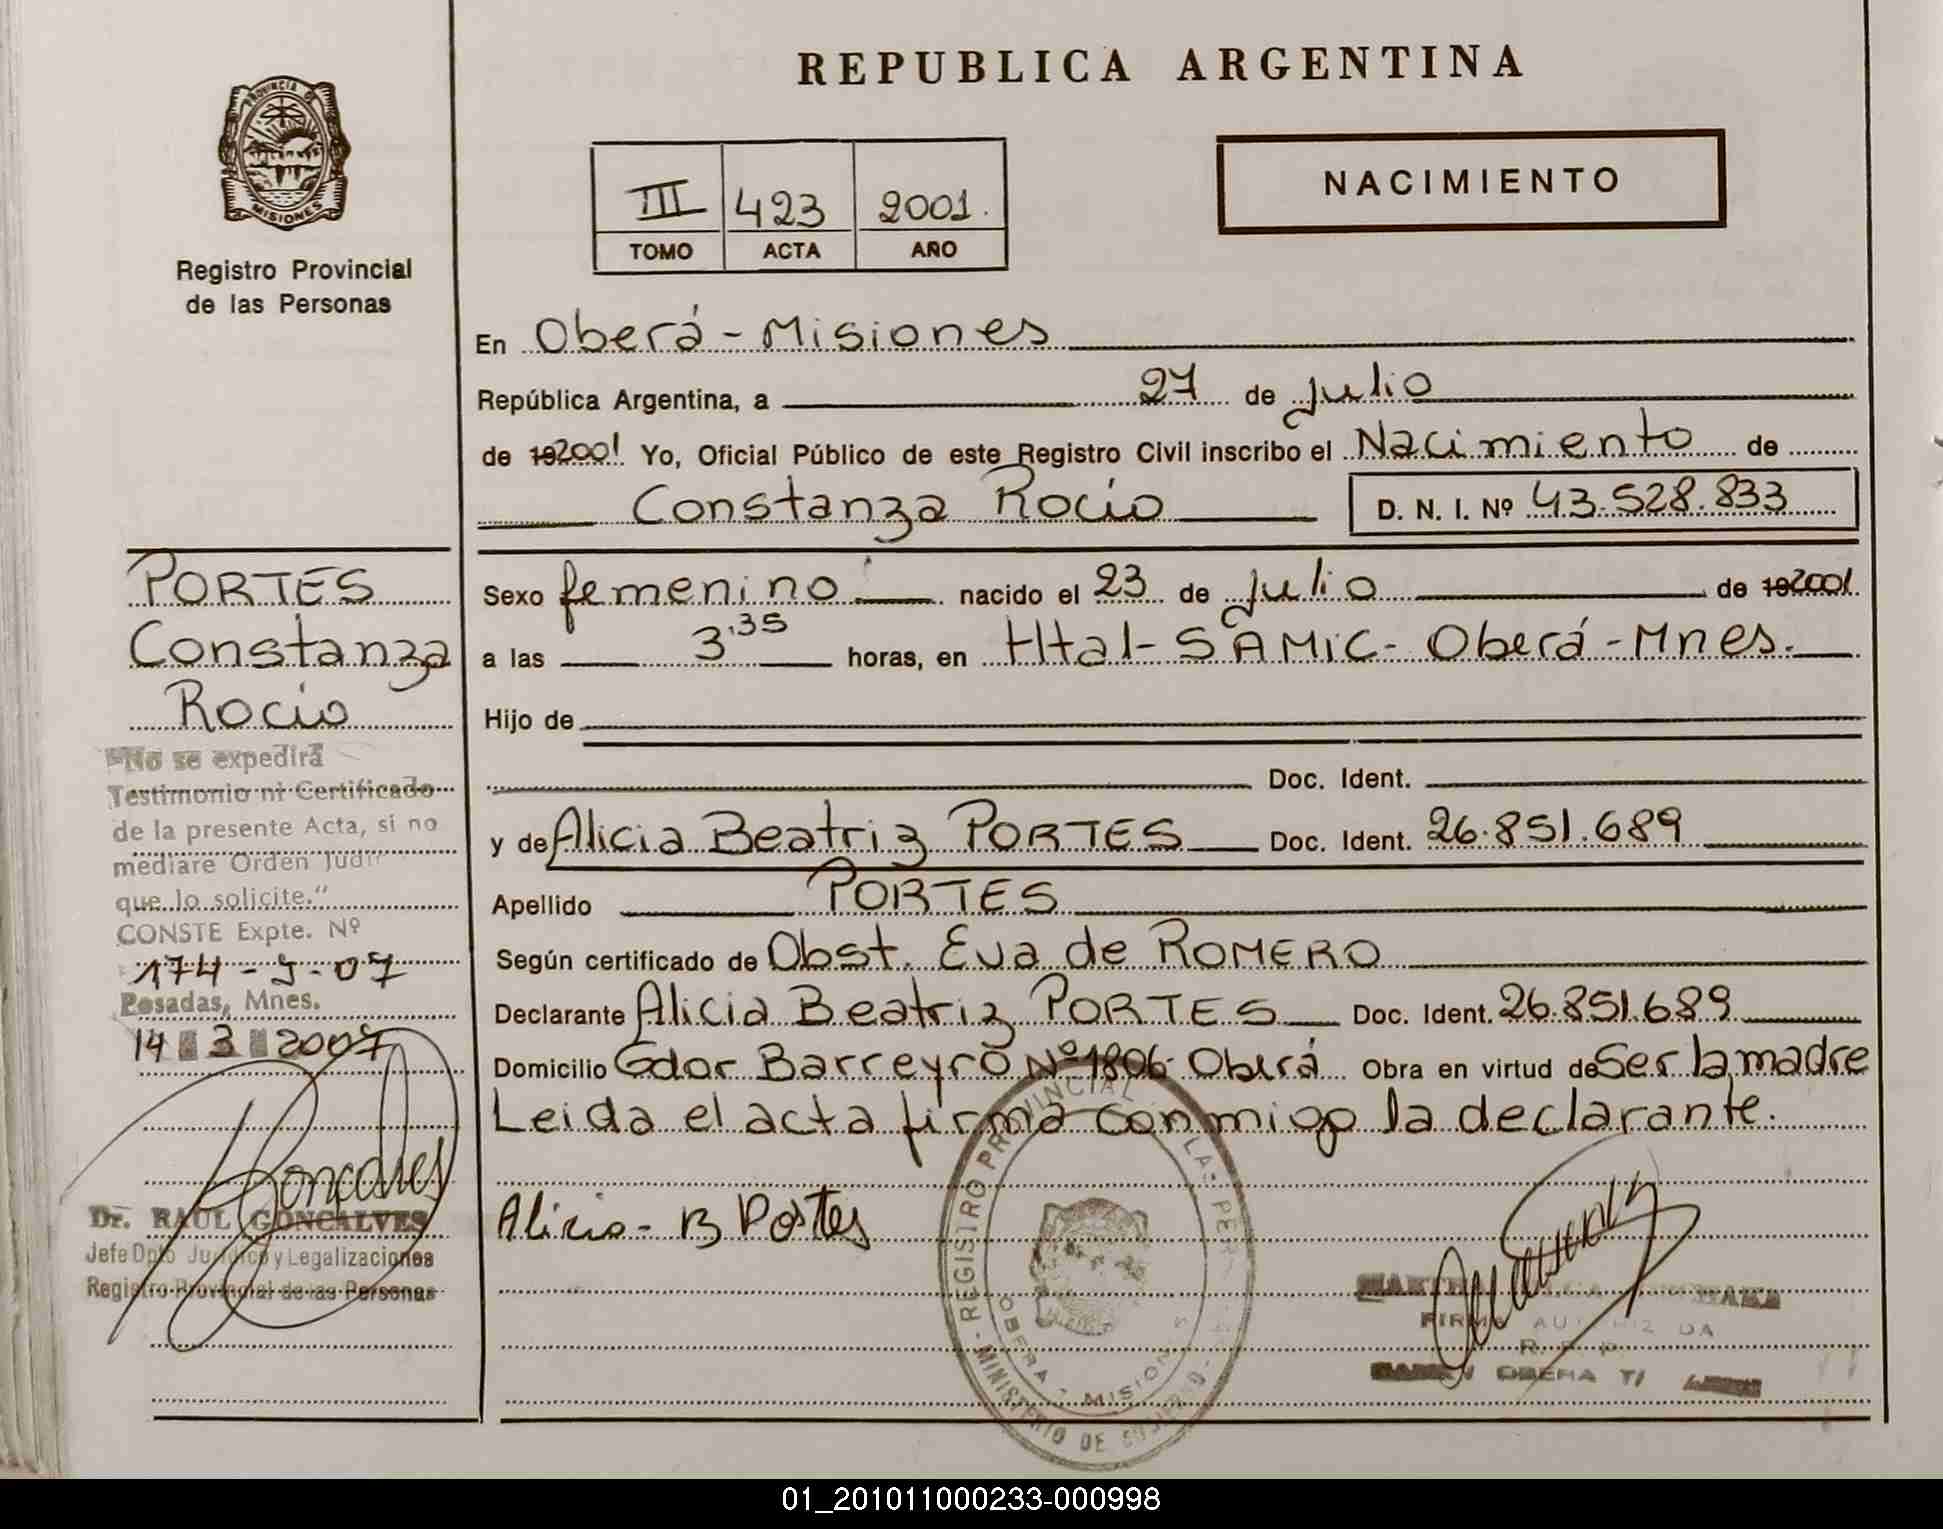 REPUBLICA ARGENTINA
PROVINCIA DE
MISIONES
Registro Provincial
de las Personas
III 423 2001.
TOMO ACTA AÑO
NACIMIENTO
En Oberá - Misiones
República Argentina, a 27 de Julio
de 192001 Yo, Oficial Público de este Registro Civil inscribo el Nacimiento de
Constanza Rocío D. N. I. Nº 43.528.833
PORTES
Constanza
Rocío
Sexo femenino nacido el 23 de Julio de 192001.
a las 3,35 horas, en Htal - SAMIC - Oberá - Mnes.
Hijo de
Doc. Ident.
y de Alicia Beatriz PORTES Doc. Ident. 26.851.689
Apellido PORTES
Según certificado de Obst. Eva de ROMERO
Declarante Alicia Beatriz PORTES Doc. Ident. 26.851.689
Domicilio Gdor Barreyro Nº 1806 - Oberá Obra en virtud de Ser la madre
Leida el acta firma conmigo la declarante.
"No se expedirá
Testimonio ni Certificado
de la presente Acta, si no
mediare Orden Judi
que lo solicite."
CONSTE Expte. Nº
174 - J - 07
Posadas, Mnes.
14 3 2007
Goncalves
Dr. RAUL GONCALVES
Jefe Dpto Jurídico y Legalizaciones
Registro Provincial de las Personas
Alicia - B Portes
REGISTRO PROVINCIAL LAS PER
OBERA - MISIONES
MINISTERIO DE GOBIERNO
FIRMA AUTORIZADA
R. P. P.
OBERA
01_201011000233-000998